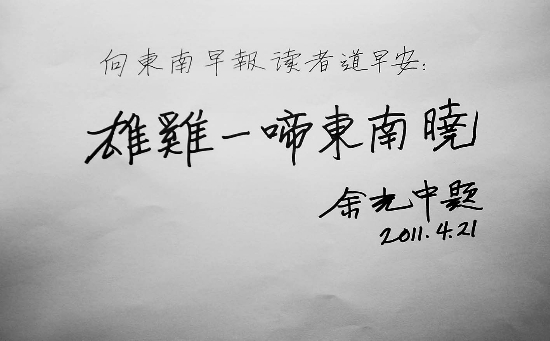 向東南早報读者道早安：
雄雞一啼東南曉
余光中题
2011.4.21